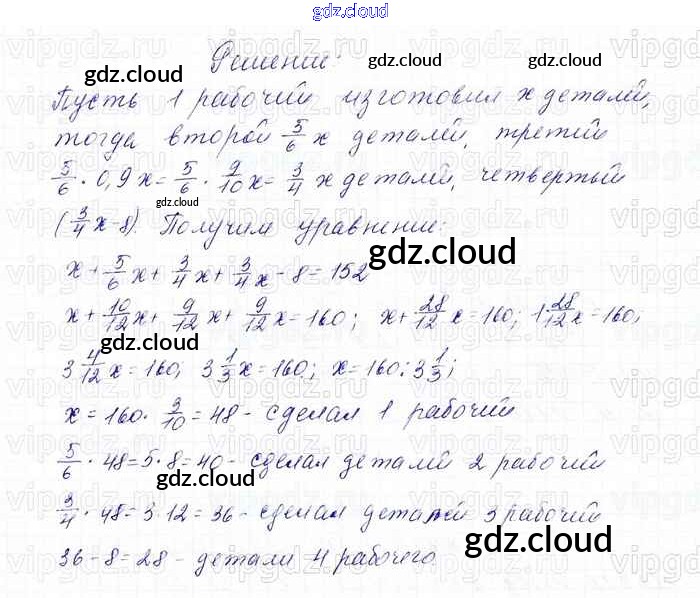 gdz.cloud
Решение:
Пусть 1 рабочий изготовил x деталей,
тогда второй 5/6 x деталей, третий
5/6 · 0,9x = 5/6 · 9/10 x = 3/4 x деталей, четвертый
(3/4 x - 8). Получим уравнение:
x + 5/6 x + 3/4 x + 3/4 x - 8 = 152
x + 10/12 x + 9/12 x + 9/12 x = 160; x + 28/12 x = 160; 1 28/12 x = 160;
3 4/12 x = 160; 3 1/3 x = 160; x = 160 : 3 1/3;
x = 160 · 3/10 = 48 - сделал 1 рабочий
5/6 · 48 = 5 · 8 = 40 - сделал деталей 2 рабочий
3/4 · 48 = 3 · 12 = 36 - сделал деталей 3 рабочий
36 - 8 = 28 - детали 4 рабочего.